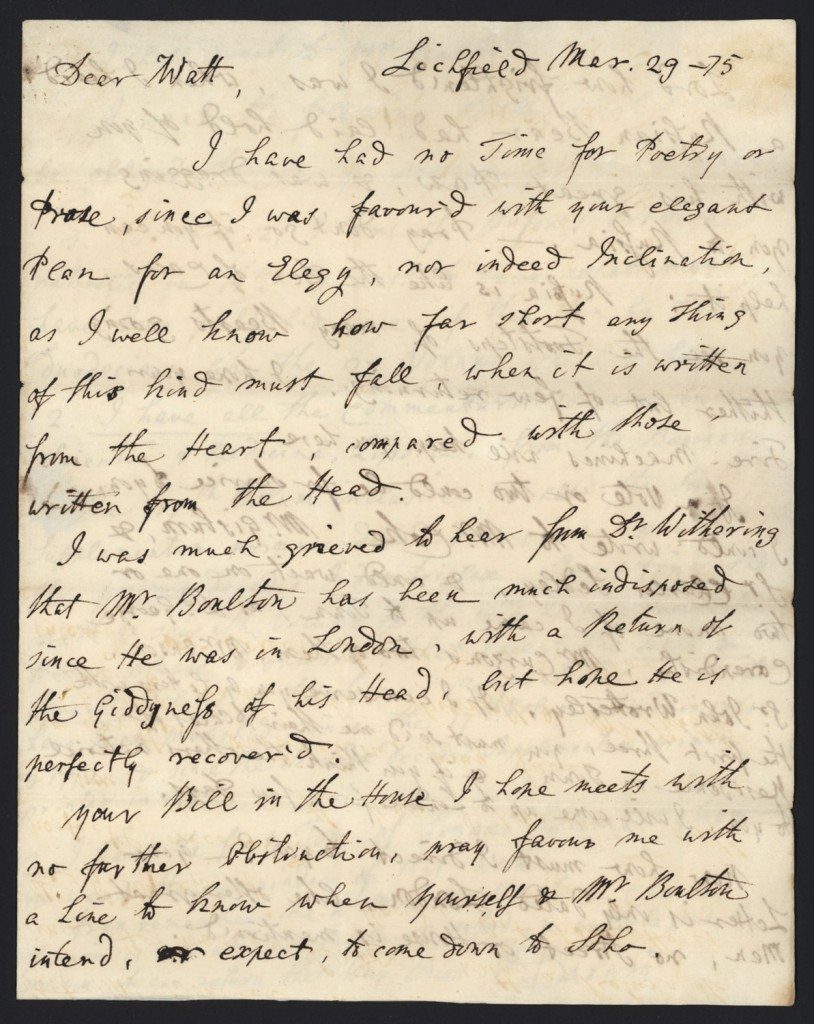 Lichfield Mar. 29 -75
Dear Watt,
I have had no Time for Poetry or
Prose, since I was favour'd with your elegant
Plan for an Elegy, nor indeed Inclination,
as I well know how far short any thing
of this kind must fall, when it is written
from the Heart, compared with those
written from the Head.
I was much grieved to hear from Dr. Withering
that Mr. Boulton has been much indisposed
since He was in London, with a Return of
the Giddyness of his Head, but hope He is
perfectly recover'd.
Your Bill in the House I hope meets with
no further Obstruction, pray favour me with
a Line to know when Yourself & Mr. Boulton
intend, or expect, to come down to Soho.